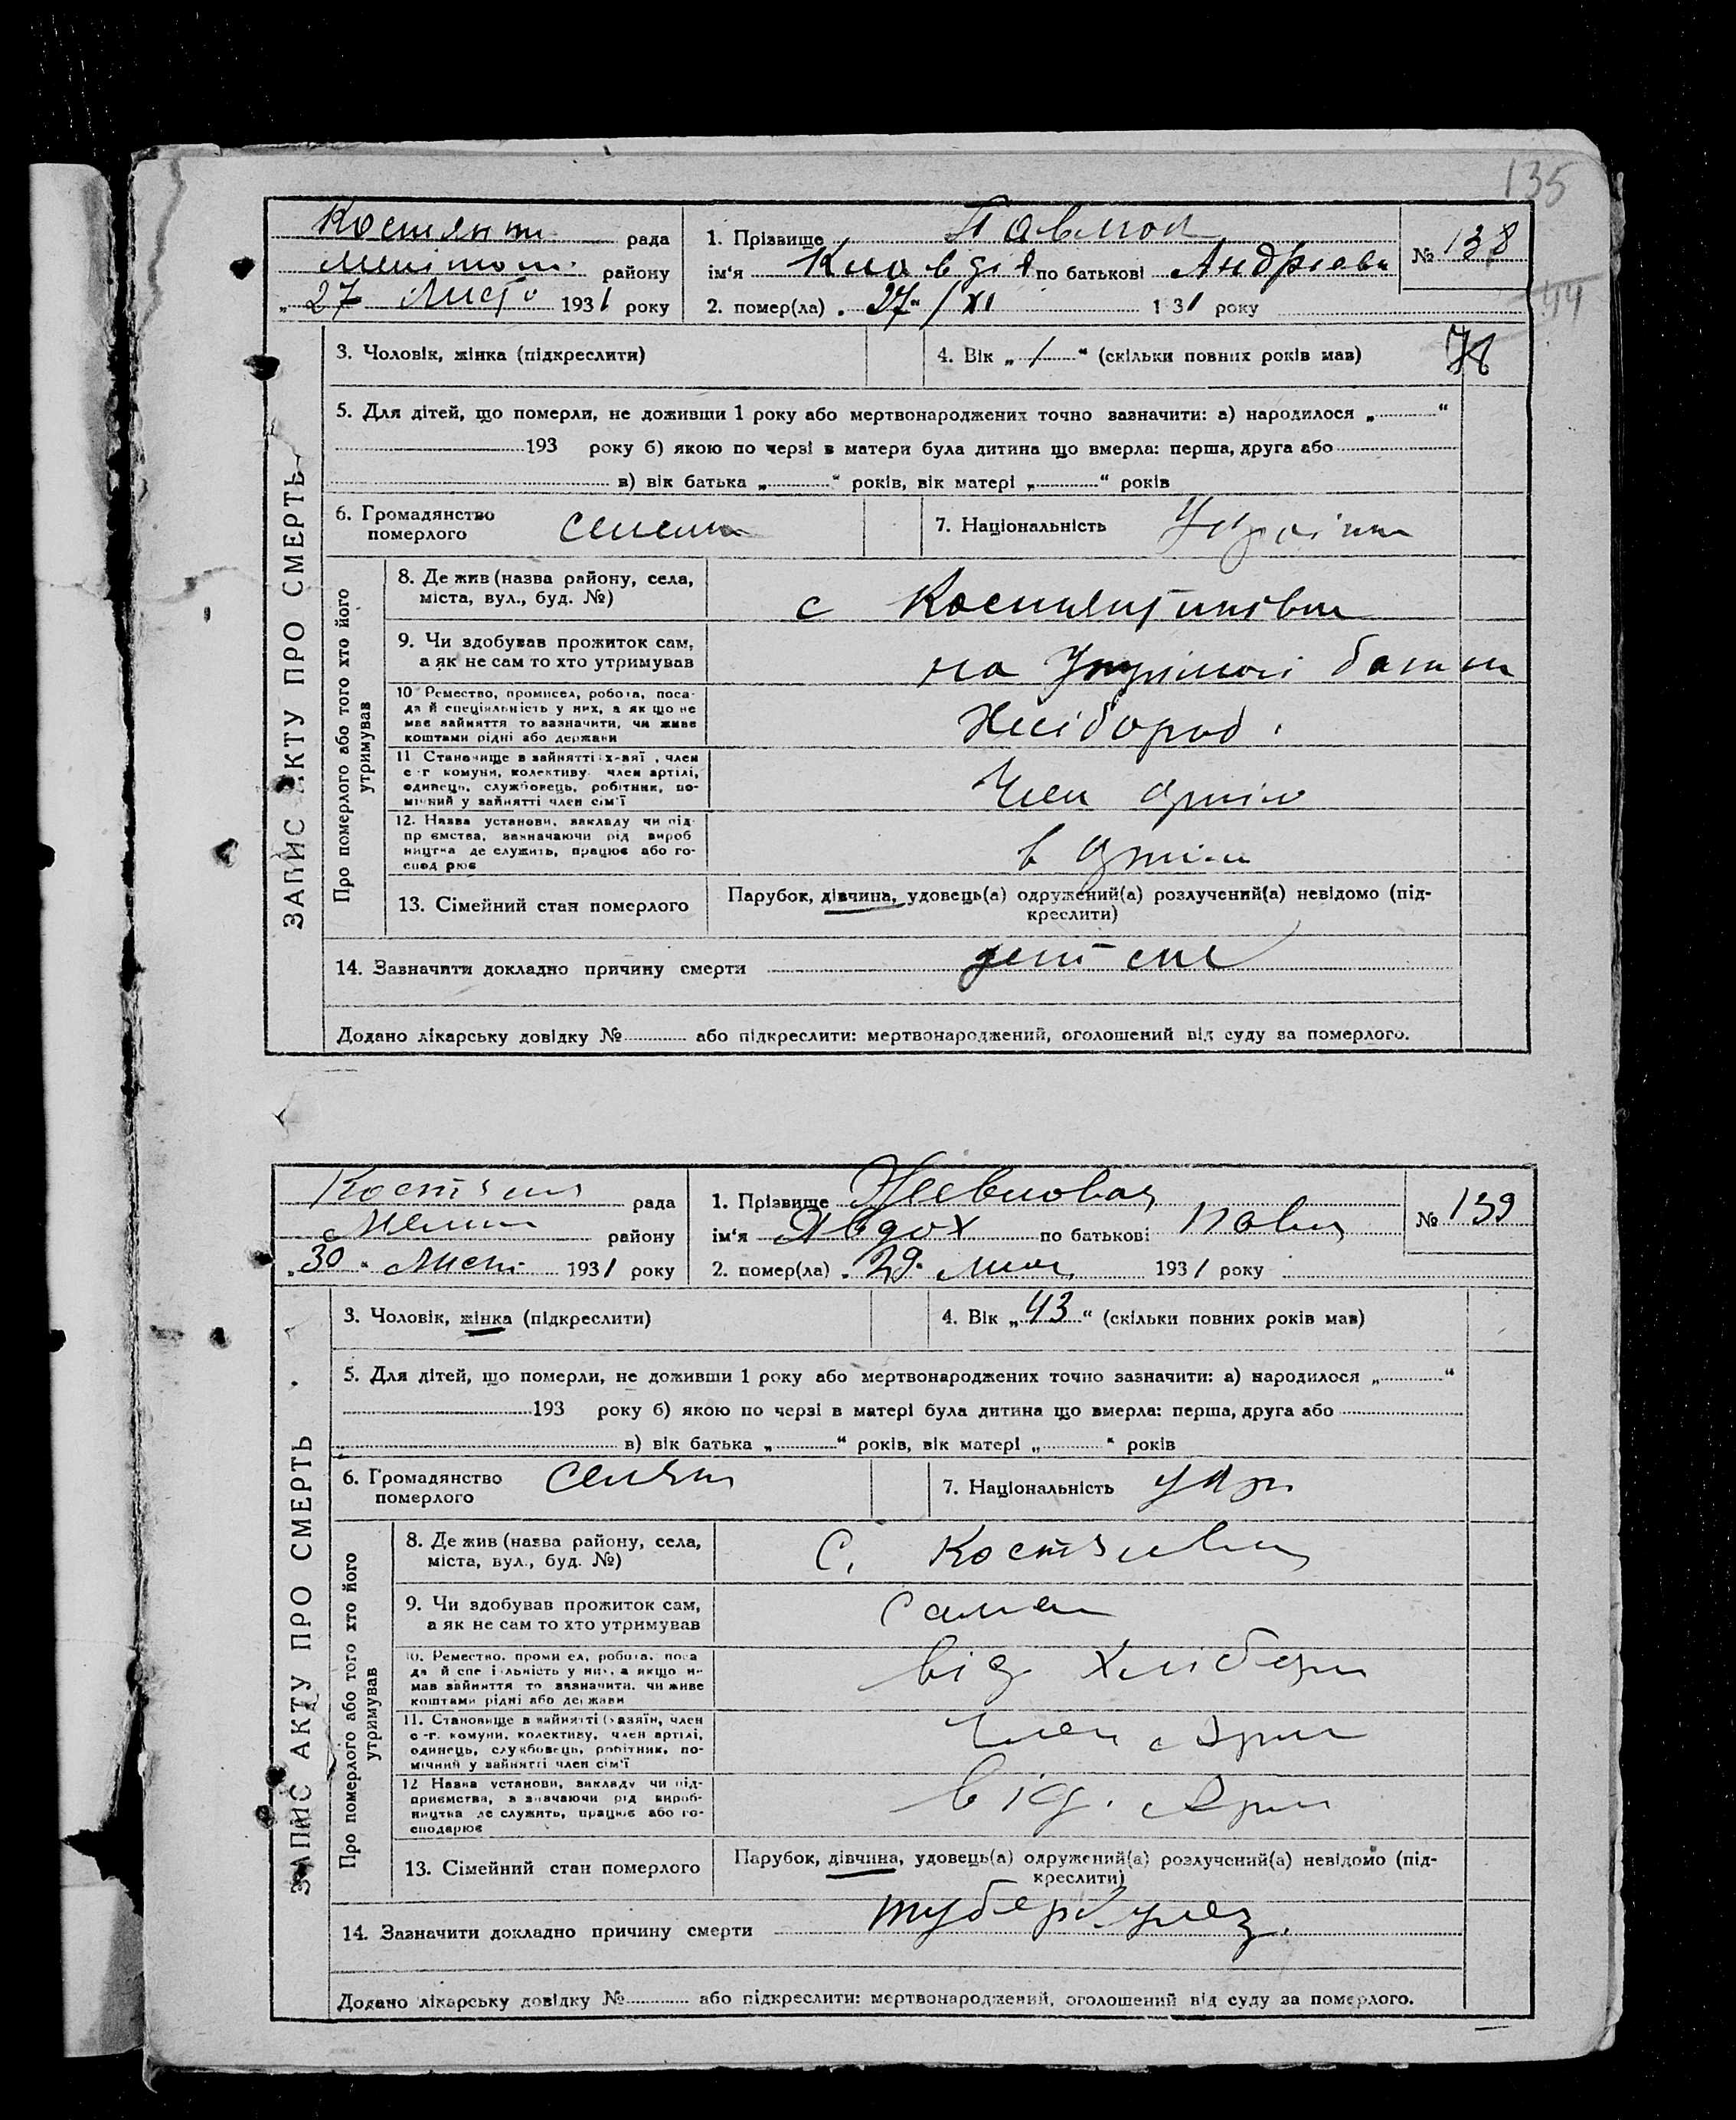 135
Костянти рада
Мелітоп. району
„27 Листо 1931 року
1. Прізвище Павлюк
ім'я Клавдія по батькові Андріевн
2. помер(ла) „27“/XI 1931 року
№ 138
44
ЗАПИС АКТУ ПРО СМЕРТЬ
3. Чоловік, жінка (підкреслити)
4. Вік „1“ (скільки повних років мав)
78
5. Для дітей, що померли, не доживши 1 року або мертвонароджених точно зазначити: а) народилося „ “
193 року б) якою по черзі в матери була дитина що вмерла: перша, друга або
в) вік батька „ “ років, вік матері „ “ років
6. Громадянство
померлого селян
7. Національність Україн
Про померлого або того хто його
утримував
8. Де жив (назва району, села,
міста, вул., буд. №)
с Костянтинівки
9. Чи здобував прожиток сам,
а як не сам то хто утримував
на Утримані батьк
10 Ремество, промисел, робота, поса-
да й спеціяльність у них, а як що не
має зайняття то зазначити, чи живе
коштами рідні або держави
Хлібороб.
11 Становище в зайнятті: х-зяї , член
с-г комуни, колективу член артілі,
одинець, службовець, робітник, по-
мічний у зайнятті член сім'ї
Член артіли
12. Назва установи, закладу чи під-
пр ємства, зазначаючи рід вироб
ництва де служить, працює або го-
спод рює
в Артіли
13. Сімейний стан померлого
Парубок, дівчина, удовець(а) одружений(а) розлучений(а) невідомо (під-
креслити)
14. Зазначити докладно причину смерти
Додано лікарську довідку № або підкреслити: мертвонароджений, оголошений від суду за померлого.
рада
Мелит району
„30“ Лист 1931 року
1. Прізвище
ім'я Явдох по батькові Павл
2. помер(ла) „29“ Лист 1931 року
№ 139
ЗАПИС АКТУ ПРО СМЕРТЬ
3. Чоловік, жінка (підкреслити)
4. Вік „43“ (скільки повних років мав)
5. Для дітей, що померли, не доживши 1 року або мертвонароджених точно зазначити: а) народилося „ “
193 року б) якою по черзі в матері була дитина що вмерла: перша, друга або
в) вік батька „ “ років, вік матері „ “ років
6. Громадянство
померлого селян
7. Національність Укр
Про померлого або того хто його
утримував
8. Де жив (назва району, села,
міста, вул., буд. №)
С.
9. Чи здобував прожиток сам,
а як не сам то хто утримував
Сама
10. Ремество, проми ел, робота, поса
да й спе і льність у них, а якщо н-
мав зайняття то зазначити, чи живе
коштами рідні або держави
від
11. Становище в зайнятті (хазяїн, член
с-г. комуни, колективу, член артілі,
одинець, службовець, робітник, по-
мічний у зайнятті член сім'ї
Член Арти
12 Назва установи, закладу чи під-
приємства, зазначаючи рід вироб-
ництва де служить, працює або го-
сподарює
від. Арти
13. Сімейний стан померлого
Парубок, дівчина, удовець(а) одружений(а) розлучений(а) невідомо (під-
креслити)
14. Зазначити докладно причину смерти туберкулез.
Додано лікарську довідку № або підкреслити: мертвонароджений, оголошений від суду за померлого.